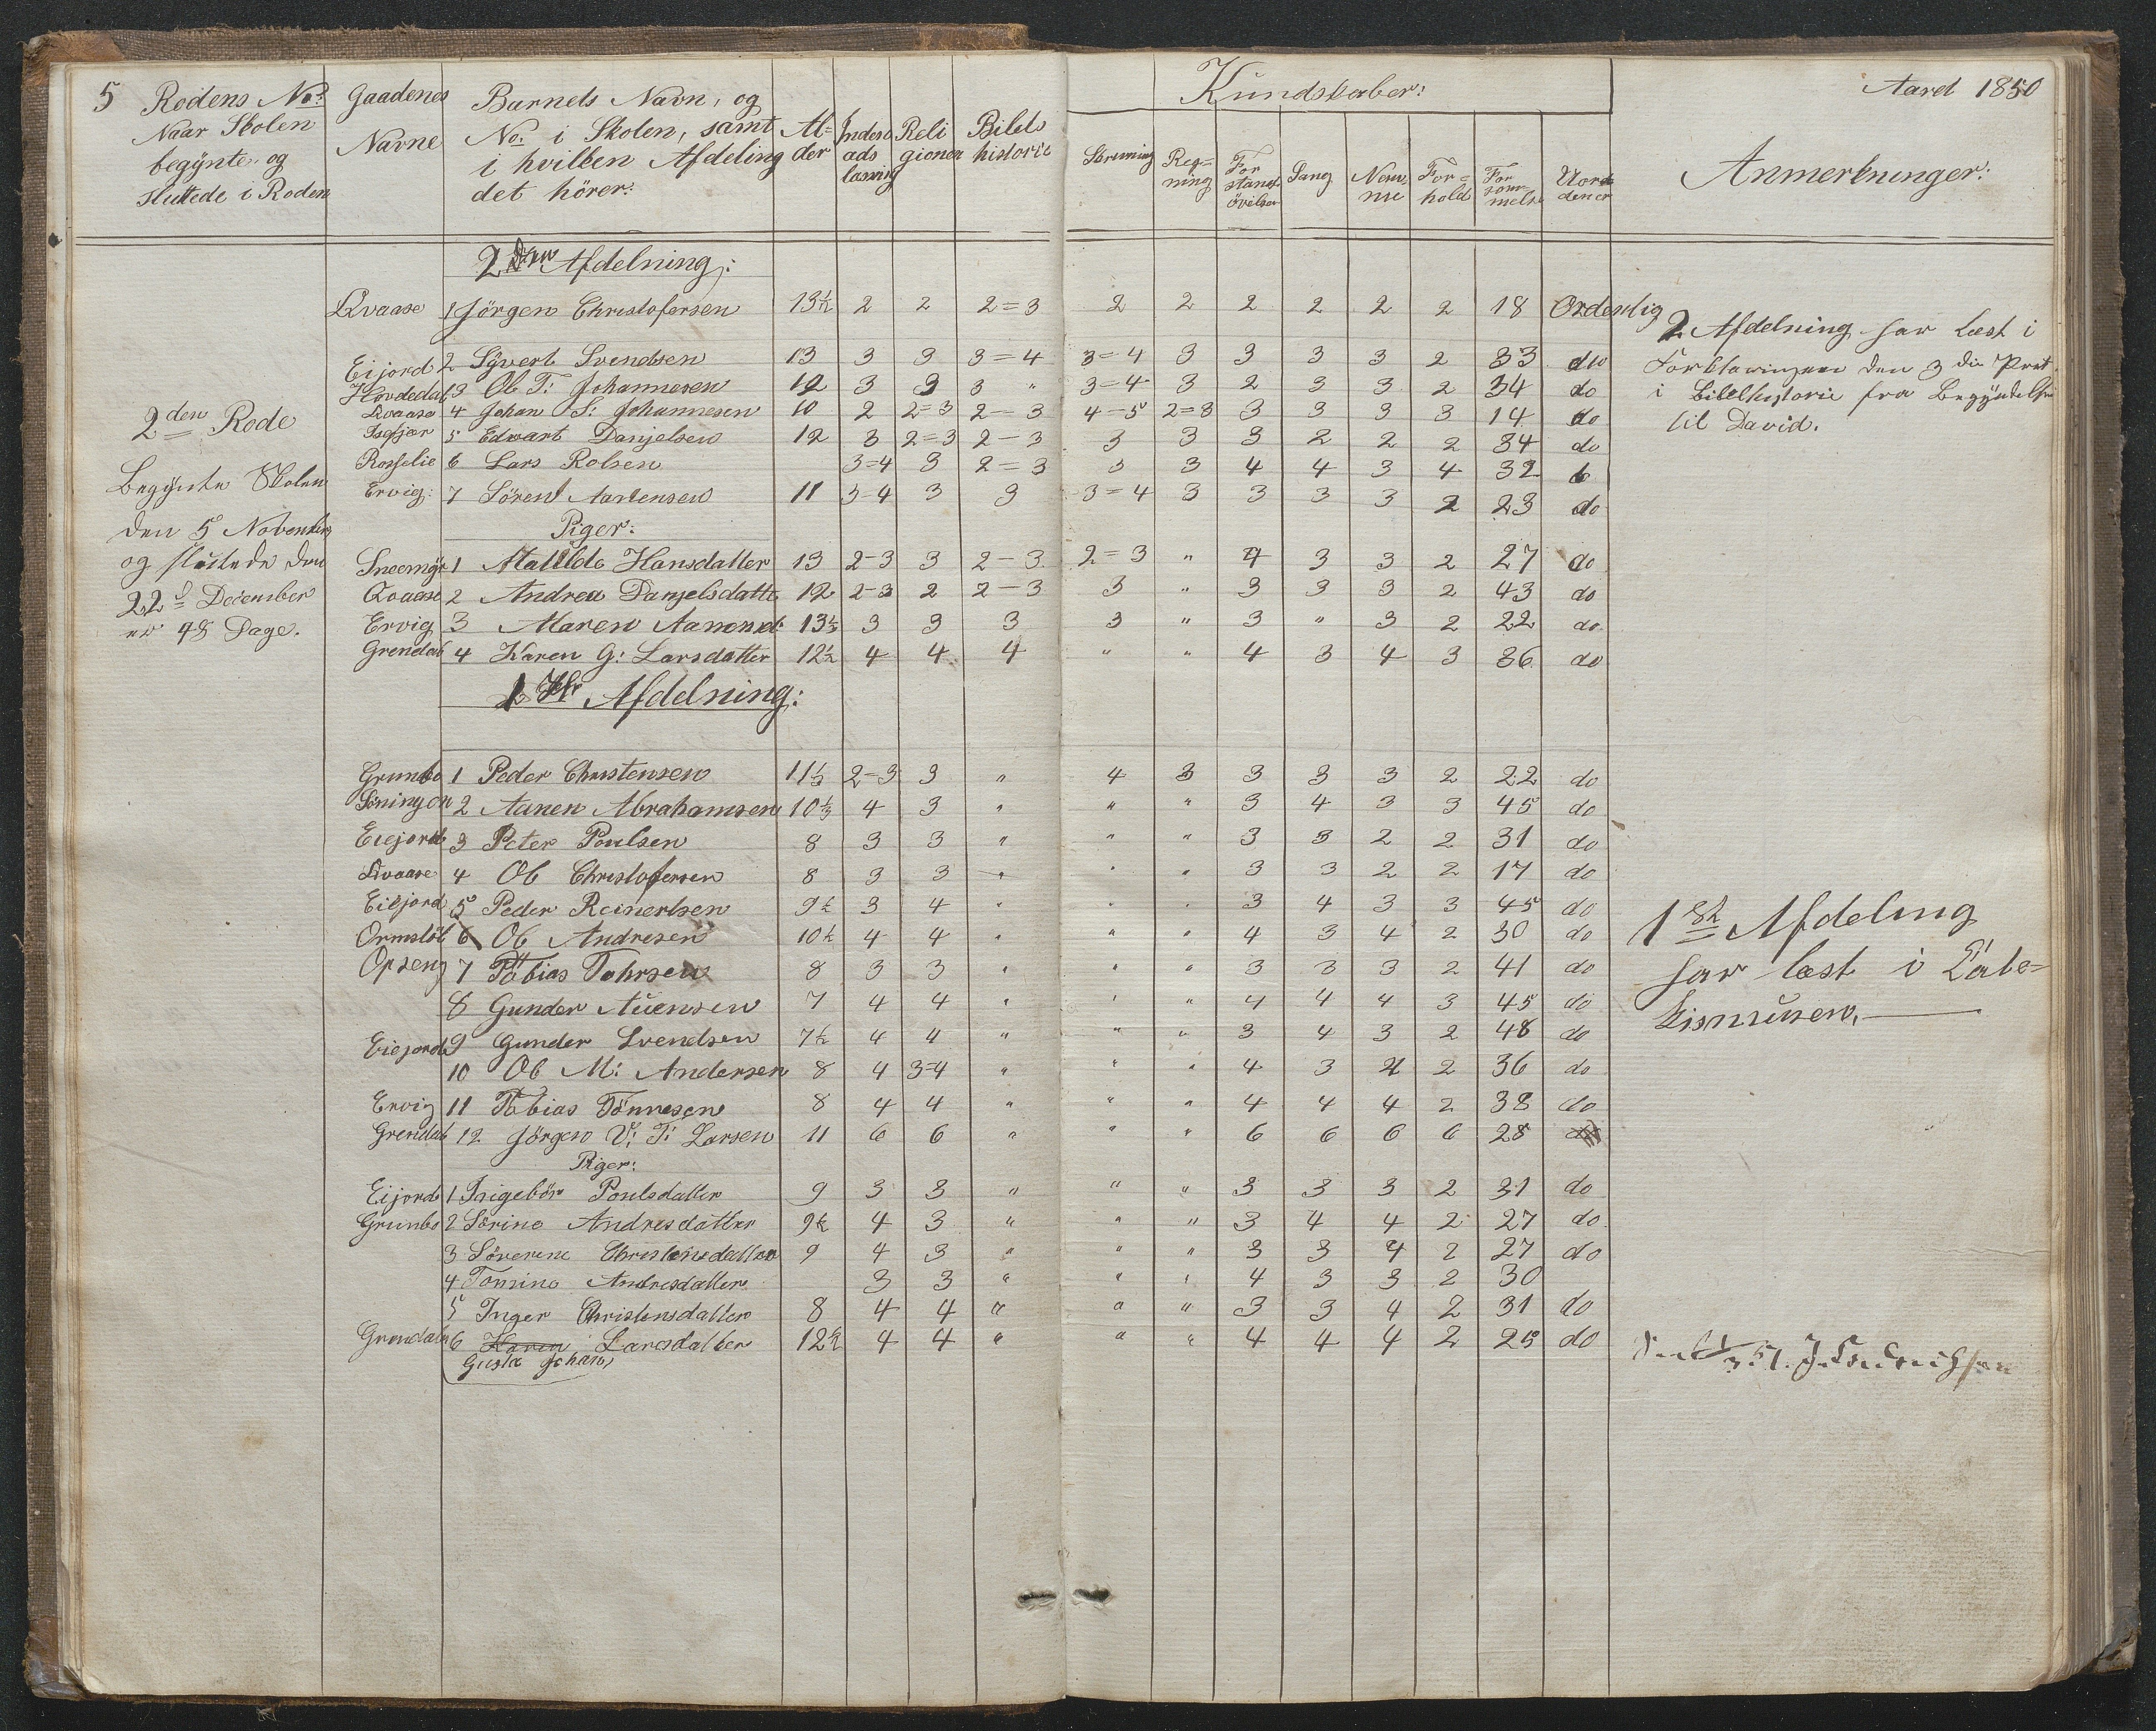 5 Rodens No: Gaadenes Barnets Navn, og Kundskaber: Aaret 1850
Naar Skolen Navne No. i Skolen, samt Al= Inden Reli Bibels Skrivning Reg= For Sang Nem= For= For Uor Anmerkninger:
begynte og i hvilken Afdeling der ads gionen historie ning stands me hold søm den er
sluttede i Roden det hörer: læsning övelse melse
2den Afdelning:
Qvaase 1 Jörgen Christofersen 13½ 2 2 2=3 2 2 2 2 2 2 18 Ordenlig
Eijord 2 Syvert Svendsen 13 3 3 3=4 3=4 3 3 3 3 2 33 do
Hovdedal 3 Ole T: Johannesen 12 3 3 3 " 3=4 3 2 3 3 2 34 do
Qvaase 4 Johan S: Johannesen 10 2 2=3 2–3 4–5 2=3 3 3 3 3 14 do
5 Edvart Danjelsen 12 3 2=3 2–3 3 3 3 2 2 2 34 do
Rosselie 6 Lars Rolsen 3=4 3 2=3 3 3 4 4 3 4 32
Ervig: 7 Sören Aanensen 11 3-4 3 3 3=4 3 3 3 3 2 23 do
Piger:
Sneemyr 1 Matilde Hansdatter 13 2-3 3 2–3 2=3 " 4 3 3 2 27 do
Qvaase 2 Andrea Danjelsdatte 12 2-3 2 2–3 3 " 3 3 3 2 43 do
Ervig 3 Maren Aanensd: 13⅓ 3 3 3 3 " 3 " 3 2 22 do
Grendal 4 Karen G: Larsdatter 12½ 4 4 4 " " 4 3 4 3 36 do
2den Rode
Begynte Skolen
den 5 November
og sluttede den
22de December
er 48 Dage.
2 Afdelning har læst i
Forklaringen den 3die Part
i Bibelhistorie fra Begyndelsen
til David.
1ste Afdelning:
Grunbo 1 Peder Christensen 11⅓ 2-3 3 " 4 3 3 3 3 2 22 do
2 Aanen Abrahamsen 10⅓ 4 3 " " " 3 4 3 3 45 do
Eiejord 3 Peter Poulsen 8 3 3 " " " 3 3 2 2 31 do
Qvaase 4 Ole Christofersen 8 3 3 " " " 3 3 2 2 17 do
Eiejord 5 Peder Reinertsen 9½ 3 4 " " " 3 4 3 3 45 do
Ormsläb 6 Ole Andresen 10½ 4 4 " " " 4 3 4 2 30 do
Opseng 7 Tobias Tohrsen 8 3 3 " " " 3 3 3 2 41 do
8 Gunder Auensen 7 4 4 " " " 4 4 4 3 45 do
Eiejord 9 Gunder Svendsen 7½ 4 4 " " " 3 4 3 2 48 do
10 Ole M: Andersen 8 4 3-4 " " " 4 3 4 2 36 do
Ervig 11 Tobias Tönnesen 8 4 4 " " " 4 4 4 2 38 do
Grendal 12 Jörgen V: T: Larsen 11 6 6 " " " 6 6 6 6 28
1ste Afdeling
har læst i Cate=
kismusen.
Piger:
Eijord 1 Ingebör Poulsdatter 9 3 3 " " " 3 3 3 2 31 do
Grunbo 2 Sörine Andresdatter 9½ 4 3 " " " 3 4 4 2 27 do
3 Söverine Christensdatter 9 4 3 " " " 3 3 4 2 27 do
4 Tomine Andresdatter 3 3 " " " 4 3 3 2 30
5 Inger Christensdatter 8 4 4 " " " 3 3 4 2 31 do
Grendal 6 Karen Larsdatter 12½ 4 4 " " " 4 4 4 2 25 do
Gusta Johan